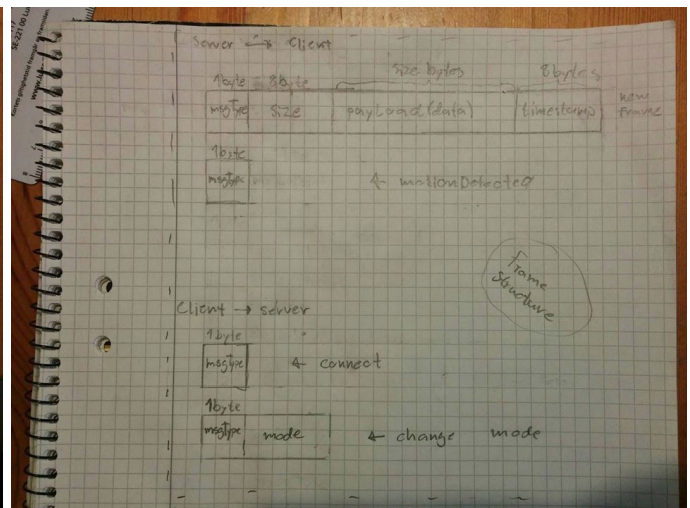 SE-221 00 Lu
www.
Server → Client
size bytes 8 bytes
1byte 8byte
msgType size payload(data) timestamp new frame
1byte
msgType ← motionDetected
Frame
structure
Client → server
1byte
msgType ← connect
1byte
msgType mode ← change mode